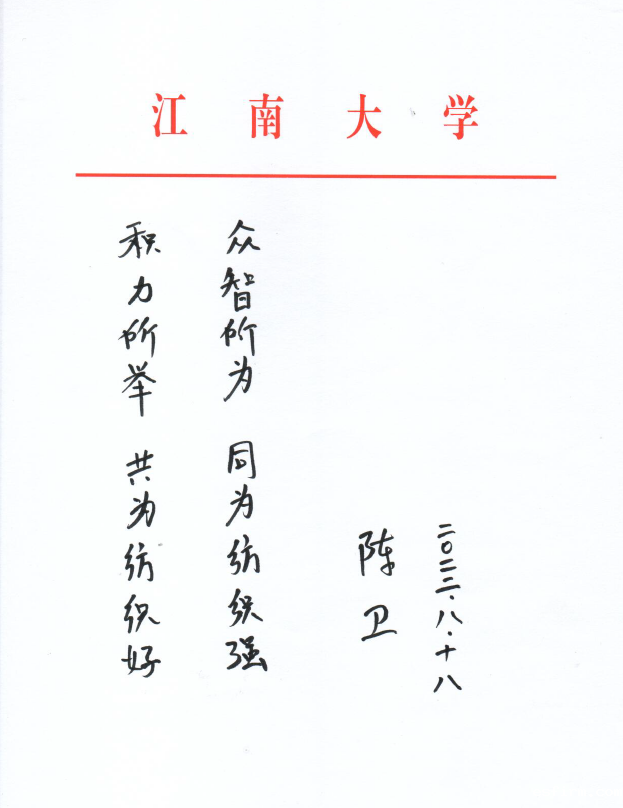 江南大学
积力所举 共为纺织好
众智所为 同为纺织强
陈卫
二〇二二·八·十八